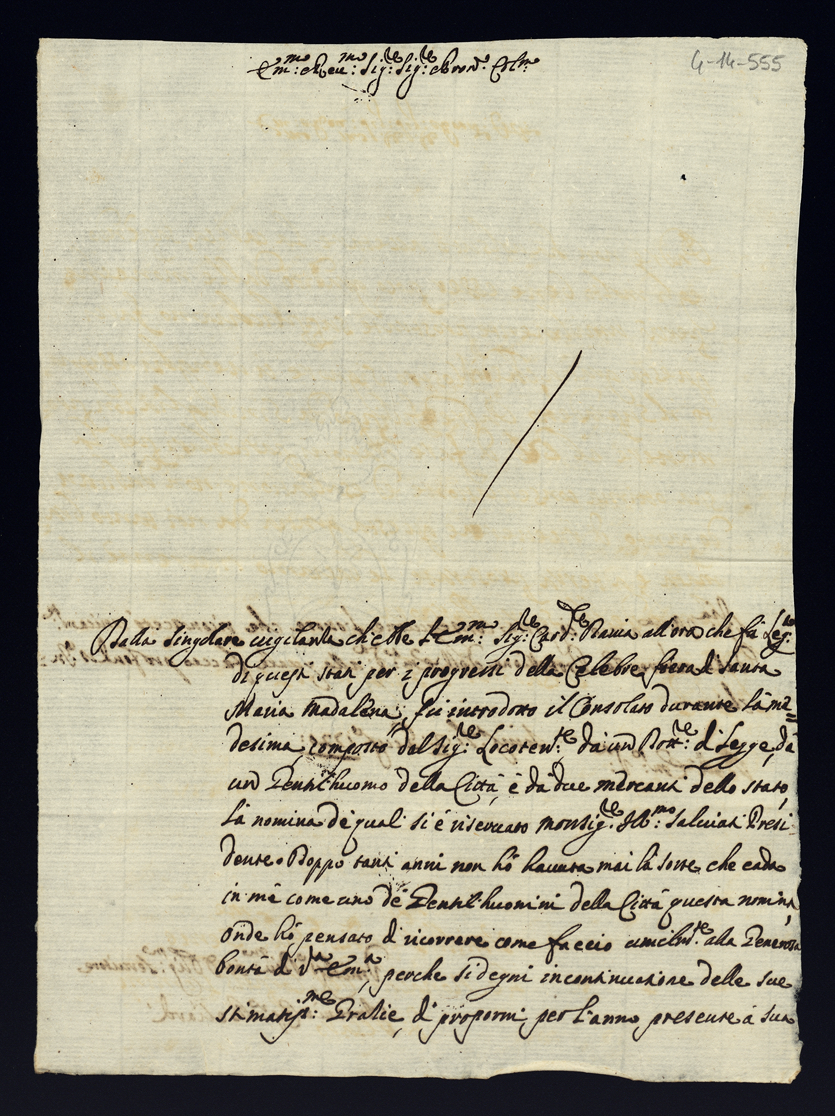 4-14-555
Em.mo e Reu.mo Sig.re Sig.re e Pron.e Col.mo
Dalla singolare uigilanza ch'ebbe l'Em.mo Sig.re Card.le Dauia all'ora che fù Leg.to
di questi stati per i progressi della Celebre fiera di Santa
Maria Madalena, fù introdotto il Consolato durante la me=
desima, composto dal Sig.re Locoten.te, da un Dott.re di Legge, da
un Gentilhuomo della Città, e da due mercanti dello stato,
la nomina de quali si è riseruato Monsig.re Ill.mo Saluiati Presi=
dente. Doppo tanti anni non hò hauuta mai la sorte che cada
in mè come uno de Gentilhuomini della Città questa nomina,
onde hò pensato di ricorrere come faccio umilm.te alla Generosa
bontà di V.ra Em.a, perche si degni in continuazione delle sue
stimatiss.me Grazie, di propormi per l'anno presente a sua